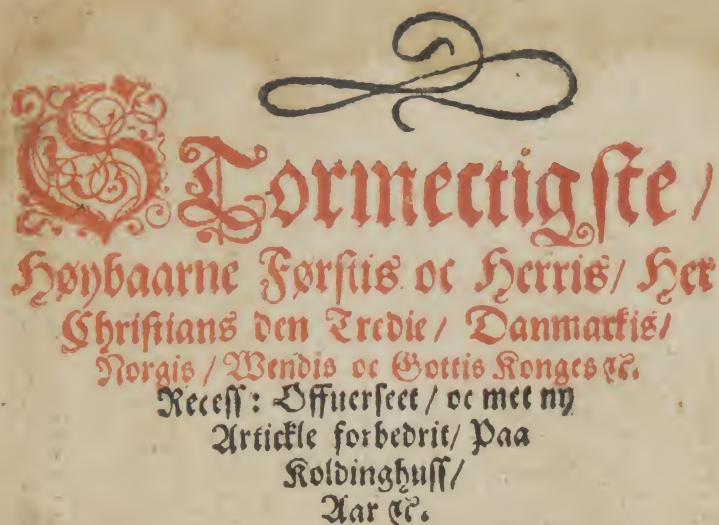 STormectigste /
Høybaarne Førstis oc Herris / Her
Christians den Tredie / Danmarkis /
Norgis / Wendis oc Gottis Konges ꝛc.
Recess : Offuerseet / oc met ny
Artickle forbedrit / Paa
Koldinghuss /
Aar ꝛc.